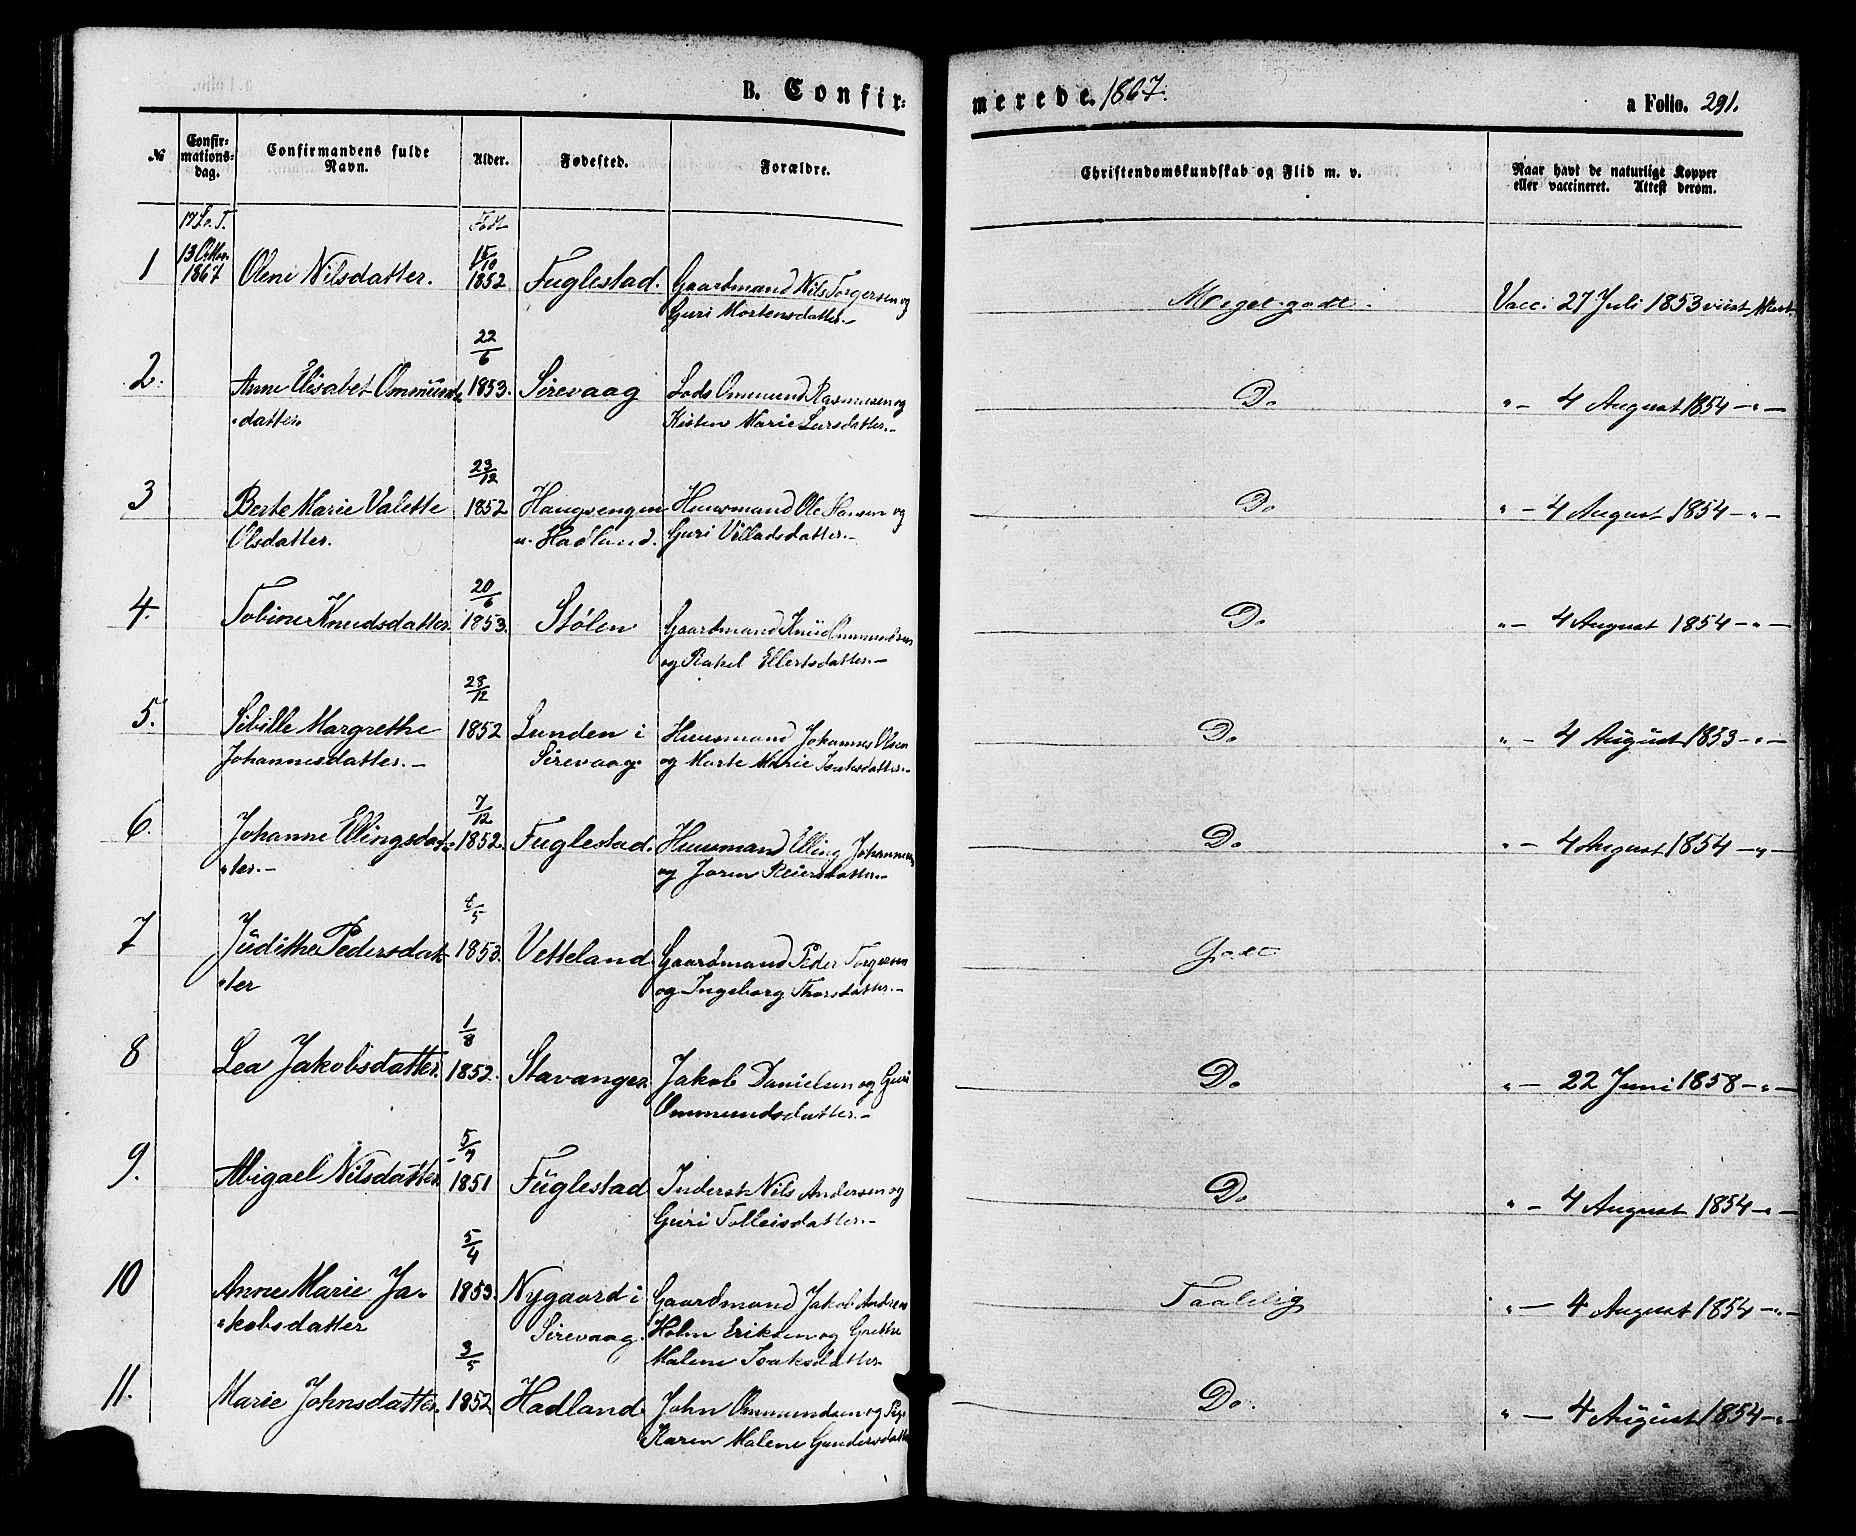 B. Confir-
merede. 1867.
a Folio. 291.
№
Confir-
mations-
dag.
Confirmandens fulde
Navn.
Alder.
Fødested.
Forældre.
Christendomskundskab og Flid m. v.
Naar havt de naturlige Kopper
eller vaccineret. Attest derom.
Født
1 13 Octbr. 1867 Oleni Nilsdatter. 15/10 1852 Fuglestad. Gaardmand Nils Torgersen og
Guri Mortensdatter.–
Meget godt. Vacc: 27 Juli 1853 viist Attest.
2. Anne Elisabet Ommunds-
datter. 22/6 1853. Sirevaag Lods Ommund Rasmusen og
Kisten Marie Larsdatter.–
Do „ – 4 August 1854 – „ –
3 Berte Marie Valette
Olsdatter. 23/12 1852 Haugsengen
u. Hadland. Huusmand Ole Hansen og
Guri Villadsdatter.–
Do „ – 4 August 1854 – „ –
4. Tobine Knudsdatter. 20/6 1853. Stølen Gaardmand Knud Ommundsen
og Rakel Ellertsdatter.–
Do „ – 4 August 1854 – „ –
5. Sibille Margrethe
Johannesdatter.– 28/12 1852 Lunden i
Sirevaag. Huusmand Johannes Olsen
og Marte Marie Isaksdatter.–
Do „ – 4 August 1853 – „ –
6. Johanne Ellingsdat-
ter.– 7/12 1852. Fuglestad. Huusmand Elling Johannesen
og Joren Reiersdatter.–
Do „ – 4 August 1854 – „ –
7 Judithe Pedersdat-
ter /5 1853. Vetteland. Gaardmand Peder Torgersen
og Ingeborg Thorsdatter.–
Godt
8 Lea Jakobsdatter. 1/8 1852. Stavanger. Jakob Danielsen og Guri
Ommundsdatter.–
Do „ – 22 Juni 1858 – „ –
9. Abigael Nilsdatter. 5/9 1851 Fuglestad Inderst Nils Andersen og
Guri Tolleisdatter.–
Do „ – 4 August 1854 – „ –
10 Anne Marie Ja-
kobsdatter 5/4 1853. Nygaard i
Sirevaag. Gaardmand Jakob Andreas
Holm Eriksen og Grethe
Malene Isaksdatter.
Taalelig „ – 4 August 1854 – „ –
11. Marie Johnsdatter. 3/5 1852 Hadland. John Ommundsen og Pige
Karen Malene Gundersdatter
Do. „ – 4 August 1854 – „ –